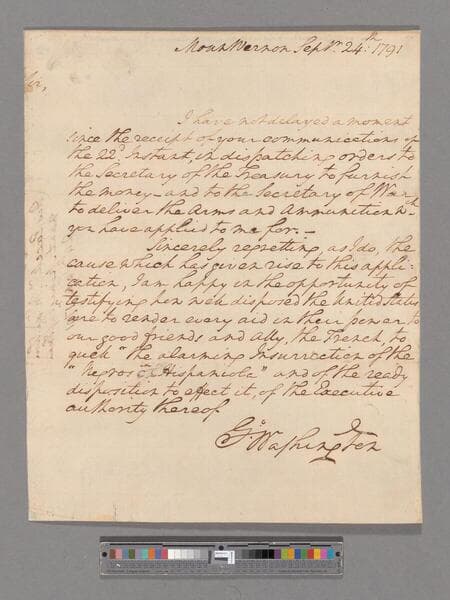 Mount Vernon Sepr. 24th. 1791
Sir,
I have not delayed a moment
since the receipt of your communications of
the 22d. Instant, in dispatching orders to
the Secretary of the Treasury to furnish
the money—and to the Secretary of War
to deliver the Arms and Ammunition wch.
you have applied to me for.—
Sincerely regretting, as I do, the
cause which has given rise to this appli-
cation, I am happy in the opportunity of
testifying how well disposed the United States
are to render every aid in their power to
our good friends and Ally, the French, to
quell "the alarming Insurrection of the
"Negros in Hispaniola" and of the ready
disposition to effect it, of the Executive
authority thereof
Go. Washington